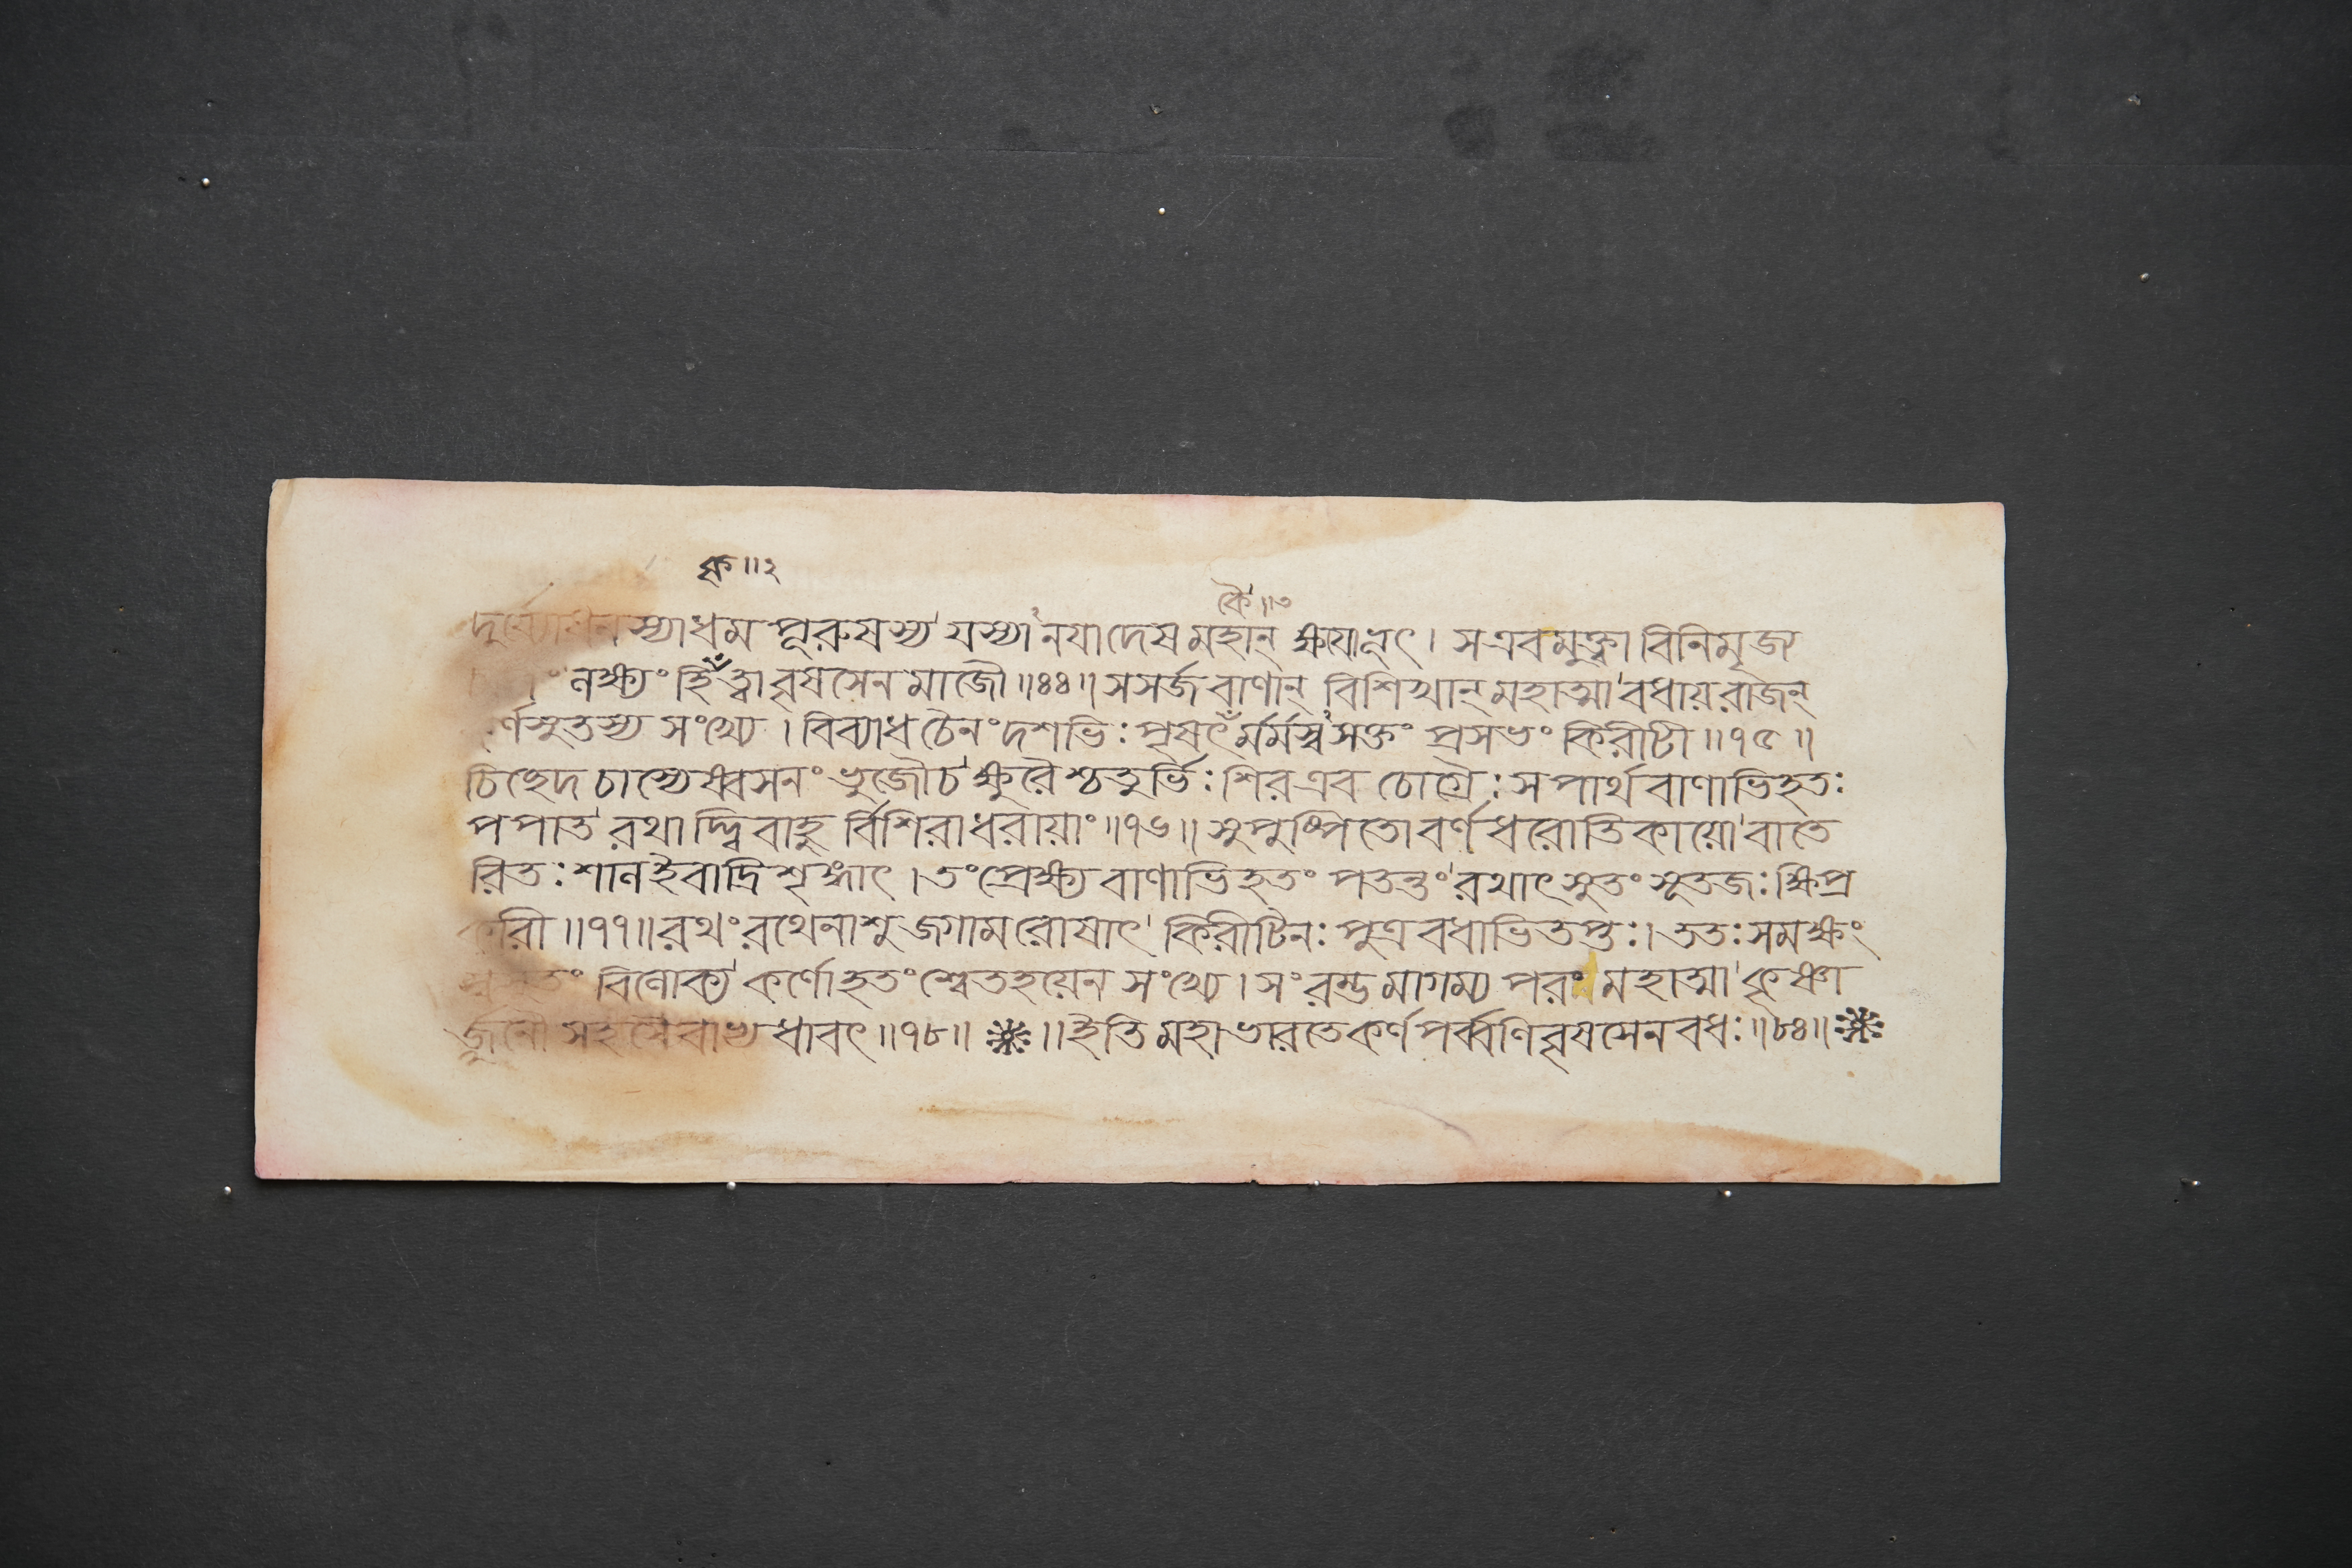 ক্ষ॥২
কৈ॥৩
দুর্য্যোধনস্যাধমপূরুষস্য যস্যানযাদেষ মহান্ ক্ষয়োভূৎ। স এবমুক্ত্বা বিনিমৃজ্য
লক্ষ্যং হি কৃত্বা বৃষসেনমাজৌ॥৪৪॥ সসর্জ বাণান্ বিশিখান্ মহাত্মা বধায় রাজন্
কর্ণসুতস্য সংখ্যে। বিব্যাধ চৈনং দশভিঃ পৃষৎকৈর্মর্মস্বসক্তং প্রসভং কিরীটী॥৭৫॥
চিচ্ছেদ চাস্যেষ্বসনং ভুজৌ চ ক্ষুরৈশ্চতুর্ভিঃ শির এব চোগ্রৈঃ স পার্থবাণাভিহতঃ
পপাত রথাদ্বিবাহুর্বিশিরা ধরায়াং॥৭৬॥ সুপুষ্পিতো বর্ণধরোতিকায়ো বাতে
রিতঃ শাল ইবাদ্রিশৃঙ্গাৎ। তং প্রেক্ষ্য বাণাভিহতং পতন্তং রথাৎ সুতং সূতজঃ ক্ষিপ্র
কারী॥৭৭॥ রথং রথেনাশু জগাম রোষাৎ কিরীটিনঃ পুত্রবধাভিতপ্তঃ। ততঃ সমক্ষং
স্বসুতং বিলোক্য কর্ণো হতং শ্বেতহয়েন সংখ্যে। সংরম্ভমাগম্য পরং মহাত্মা কৃষ্ণা
র্জুনৌ সহসৈবাভ্যধাবৎ॥৭৮॥ ❋॥ ইতি মহাভারতে কর্ণপর্ব্বণি বৃষসেনবধঃ॥৮৪॥❋